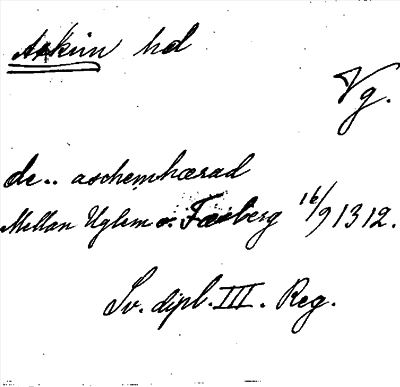 Askim hd
Vg.
de.. aschemhærad
Mellan Uglem o. Færberg 16/9 1312.
Sv. dipl. III. Reg.